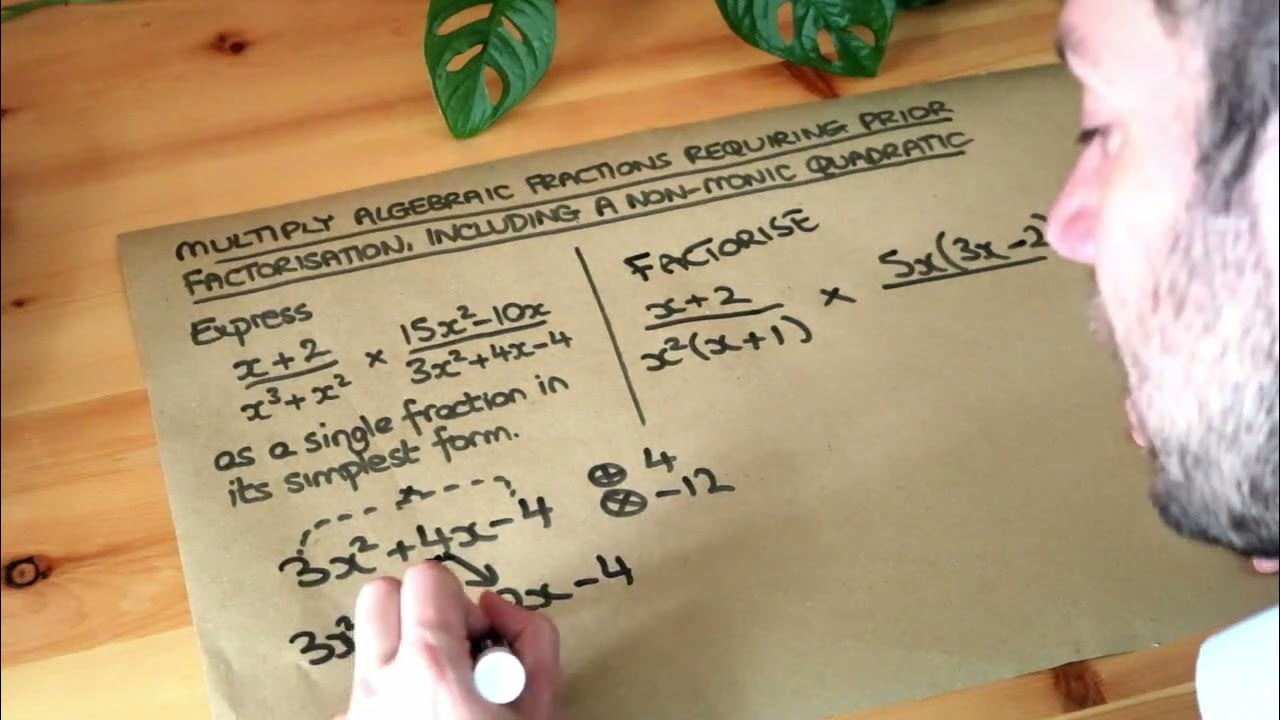 MULTIPLY ALGEBRAIC FRACTIONS REQUIRING PRIOR
FACTORISATION, INCLUDING A NON-MONIC QUADRATIC
Express
x+2 / x³+x² × 15x²-10x / 3x²+4x-4
as a single fraction in
its simplest form.
3x²+4x-4
3x² 2x-4
⊕ 4
⊗ -12
FACTORISE
x+2 / x²(x+1) × 5x(3x-2)